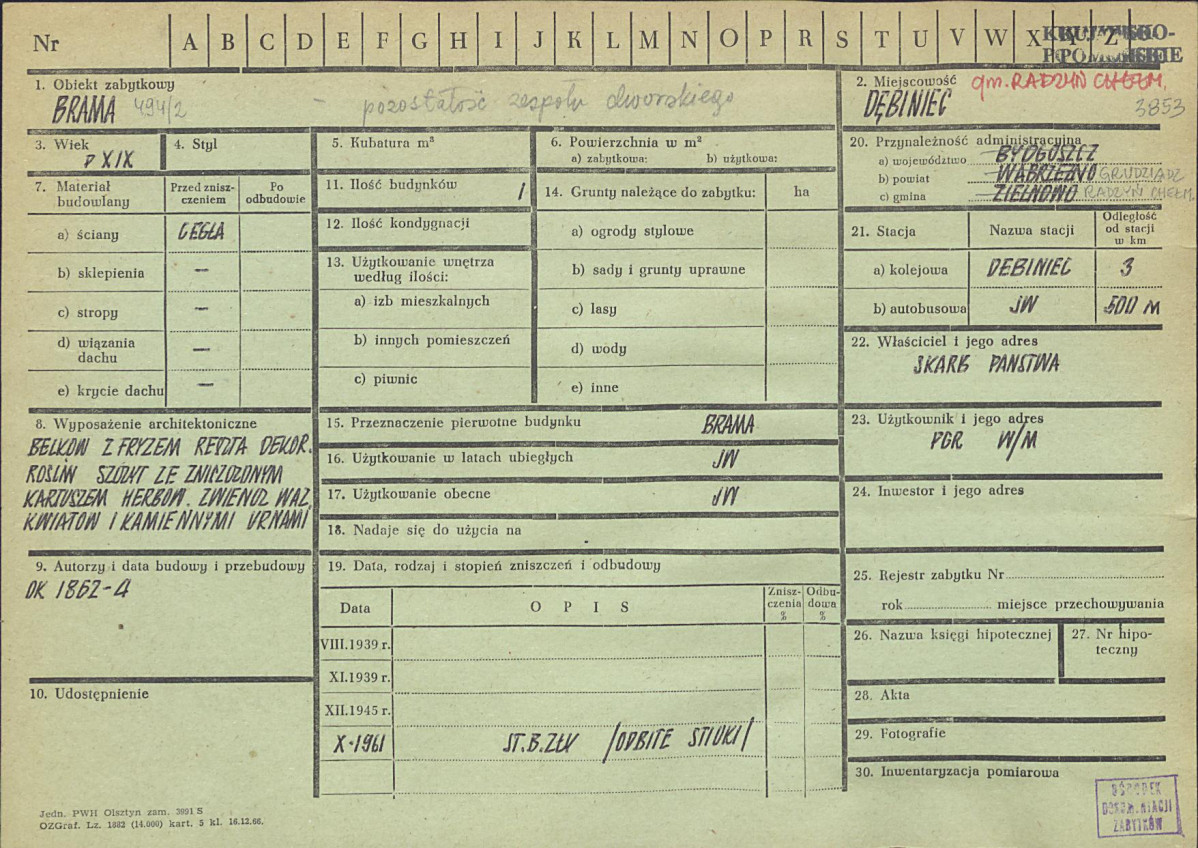 Nr A B C D E F G H I J K L M N O P R S T U V W X Y Z
1. Obiekt zabytkowy
BRAMA 494/2 – pozostałość zespołu dworskiego
2. Miejscowość gm. RADZYŃ CHEŁM.
DĘBINIEC 3853
3. Wiek
p XIX
4. Styl
5. Kubatura m³
6. Powierzchnia w m²
a) zabytkowa: b) użytkowa:
20. Przynależność administracyjna
a) województwo BYDGOSZCZ
b) powiat WĄBRZEŹNO GRUDZIĄDZ
c) gmina ZIELNOWO RADZYŃ CHEŁM.
7. Materiał
budowlany
Przed znisz-
czeniem
Po
odbudowie
a) ściany CEGŁA
b) sklepienia —
c) stropy —
d) wiązania
dachu —
e) krycie dachu —
11. Ilość budynków 1
12. Ilość kondygnacji
13. Użytkowanie wnętrza
według ilości:
a) izb mieszkalnych
b) innych pomieszczeń
c) piwnic
14. Grunty należące do zabytku: ha
a) ogrody stylowe
b) sady i grunty uprawne
c) lasy
d) wody
e) inne
21. Stacja
Nazwa stacji
Odległość
od stacji
w km
a) kolejowa DĘBINIEC 3
b) autobusowa JW 500 M
22. Właściciel i jego adres
SKARB PAŃSTWA
8. Wyposażenie architektoniczne
BELKOW Z FRYZEM DEKOR.
ROŚLIN SZCZYT ZE ZNISZCZONYM
KARTUSZEM HERBOW. ZWIEŃCZ WAZ.
KWIATÓW I KAMIENNYMI URNAMI
15. Przeznaczenie pierwotne budynku BRAMA
16. Użytkowanie w latach ubiegłych JW
17. Użytkowanie obecne JW
18. Nadaje się do użycia na
23. Użytkownik i jego adres
PGR W/M
24. Inwestor i jego adres
9. Autorzy i data budowy i przebudowy
OK 1862-4
19. Data, rodzaj i stopień zniszczeń i odbudowy
Data
O P I S
Znisz-
czenia
%
Odbu-
dowa
%
VIII.1939 r.
XI.1939 r.
XII.1945 r.
X-1961 ST. B. ZŁY /ODBITE STIUKI/
25. Rejestr zabytku Nr
rok miejsce przechowywania
26. Nazwa księgi hipotecznej
27. Nr hipo-
teczny
10. Udostępnienie
28. Akta
29. Fotografie
30. Inwentaryzacja pomiarowa
OŚRODEK
DOKUMENTACJI
ZABYTKÓW
Jedn. PWH Olsztyn zam. 3991 S
OZGraf. Lz. 1882 (14.000) kart. 5 kl. 16.12.66.